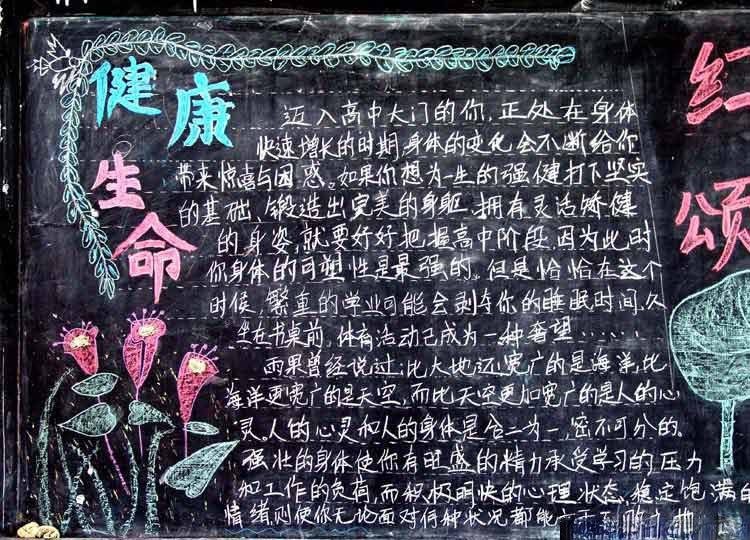 健康
生命
迈入高中大门的你,正处在身体
快速增长的时期,身体的变化会不断给你
带来惊喜与困惑。如果你想为一生的强健打下坚实
的基础、锻造出完美的身躯、拥有灵活矫健
的身姿,就要好好把握高中阶段,因为此时
你身体的可塑性是最强的。但是恰恰在这个
时候,繁重的学业可能会剥夺你的睡眠时间,久
坐在书桌前,体育活动已成为一种奢望……
雨果曾经说过:比大地还宽广的是海洋,比
海洋更宽广的是天空,而比天空更加宽广的是人的心
灵。人的心灵和人的身体是合二为一,密不可分的。
强壮的身体使你有旺盛的精力承受学习的压力
和工作的负荷,而积极明快的心理状态,稳定饱满的
情绪,则使你无论面对何种状况都能
红
颂